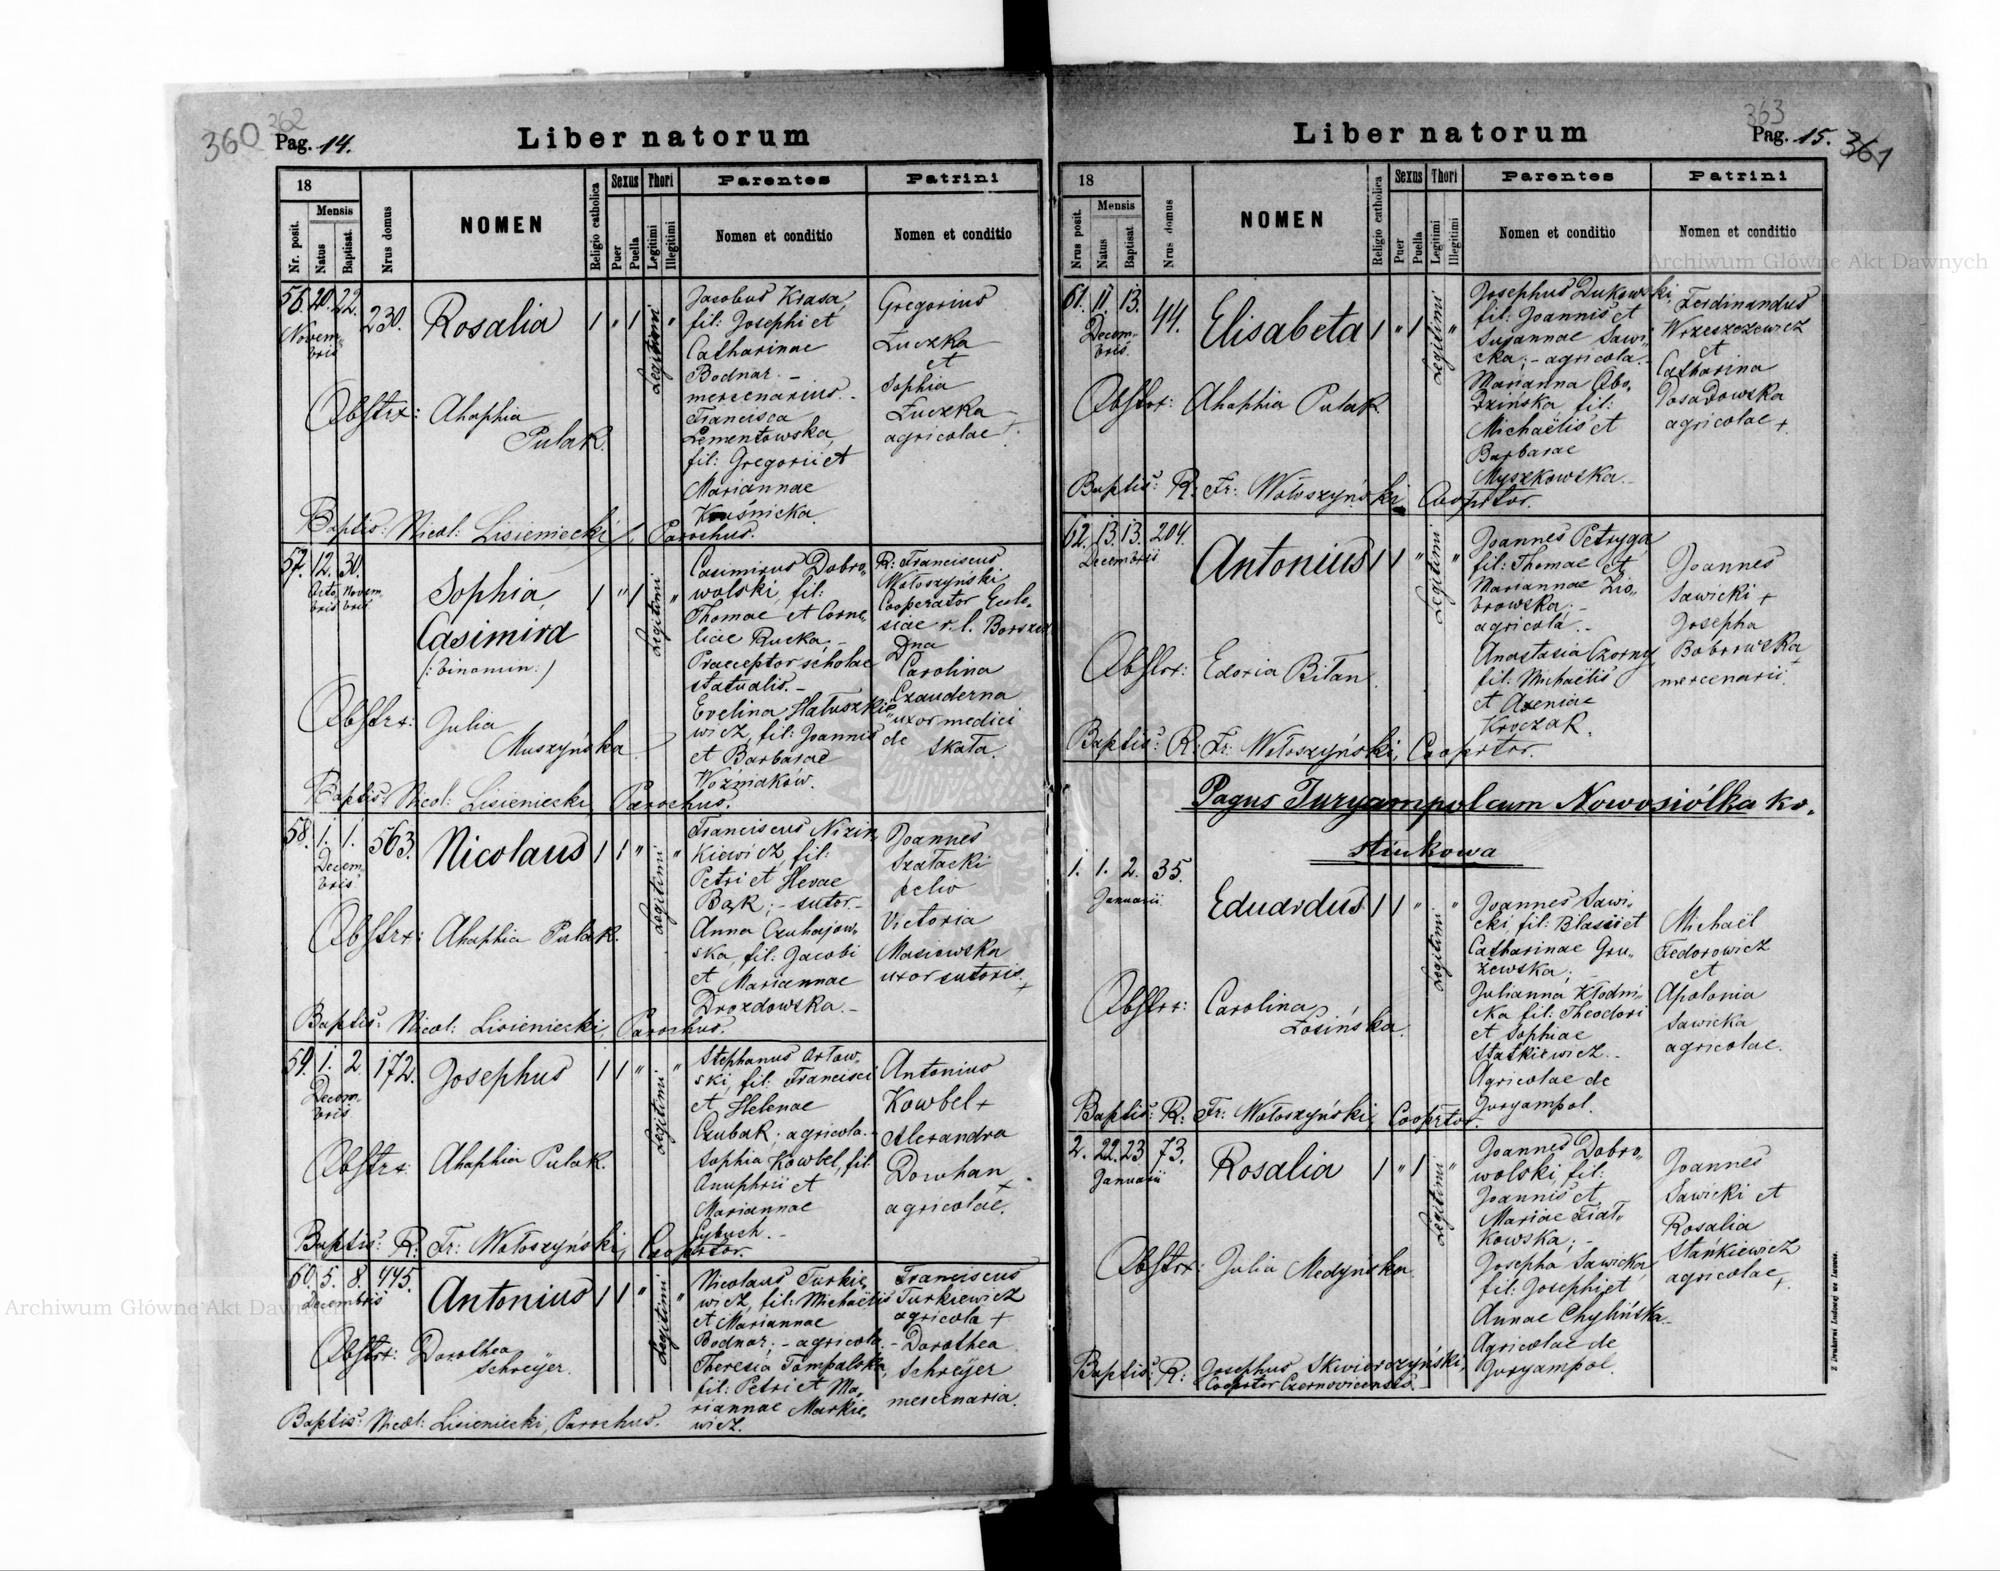 360 362
Pag. 14.
Liber natorum
18
Mensis
Nr. posit.
Natus
Baptisat.
Nrus domus
NOMEN
Religio catholica
Sexus
Puer
Puella
Thori
Legitimi
Illegitimi
Parentes
Nomen et conditio
Patrini
Nomen et conditio
56. 20. 22. 230. Rosalia 1 " 1 Legitimi "
Novem-
bris
Jacobus Krasa,
fil: Josephi et
Catharinae
Bodnar. -
mercenarius. -
Francisca
Lementowska,
fil: Gregorii et
Mariannae
Kruśnicka.
Gregorius
Łuczka
et
Sophia
Łuczka
agricolae +
Obstrx: Ahaphia
Pulak.
Baptis: Nicol: Lisieniecki, Parochus.
57. 12. 30.
Octo- Novem-
bris bris
Sophia,
Casimira
(: binomin :)
1 " 1 Legitimi "
Casimirus Dobro-
wolski, fil:
Thomae et Corne-
liae Rucka; -
Praeceptor scholae
statualis. -
Evelina Hatuszkie-
wicz, fil: Joannis
et Barbarae
Woźniaków.
R: Franciscus
Wołoszyński,
Cooperator Eccle-
siae r. l. Borszcz.
Dna
Carolina
Czauderna
uxor medici
de Skała.
Obstrx: Julia
Muszyńska
Baptis: Nicol: Lisieniecki Parochus.
58. 1. 1. 563. Nicolaus 1 1 " Legitimi "
Decem-
bris
Franciscus Nizin-
kiewicz, fil:
Petri et Hevae
Bąk; - sutor. -
Anna Czuhajow-
ska, fil: Jacobi
et Mariannae
Drozdowska. -
Joannes
Szałacki
Victoria
Masiowska
uxor sutoris +
Obstrx: Ahaphia Pulak.
Baptis: Nicol: Lisieniecki, Parochus.
59. 1. 2. 172. Josephus 1 1 " Legitimi "
Decem-
bris
Stephanus Orłow-
ski, fil: Francisci
et Helenae
Czubak; agricola. -
Sophia Kowbel, fil:
Onuphrii et
Mariannae
Cybuch. -
Antonius
Kowbel +
Alexandra
Dowhan +
agricolae.
Obstrx: Ahaphia Pulak.
Baptis: R: Fr: Wołoszyński, Cooprtor.
60. 5. 8. 445. Antonius 1 1 " Legitimi "
Decembris
Nicolaus Turkie-
wicz, fil: Michaëlis
et Mariannae
Bodnar; - agricola. -
Theresia Tompalska,
fil: Petri et Ma-
riannae Markie-
wicz.
Franciscus
Turkiewicz
agricola +
Dorothea
Schreÿer
mercenaria.
Obstrx: Dorothea
Schreÿer.
Baptis: Nicol: Lisieniecki, Parochus.
Liber natorum
363
Pag. 15. 361
18
Mensis
Nrus posit.
Natus
Baptisat.
Nrus domus
NOMEN
Religio catholica
Sexus
Puer
Puella
Thori
Legitimi
Illegitimi
Parentes
Nomen et conditio
Patrini
Nomen et conditio
61. 11. 13. 44. Elisabeta 1 " 1 Legitimi "
Decem-
bris
Josephus Dukowski,
fil: Joannis et
Susannae Sawi-
cka; - agricola. -
Marianna Obo-
dzińska, fil:
Michaëlis et
Barbarae
Myszkowska. -
Ferdinandus
Wrzeszczewicz
et
Catharina
Posadowska
agricolae +
Obstrx: Ahaphia Pulak.
Baptis: R: Fr: Wołoszyński, Cooprtor.
62. 13. 13. 204. Antonius 1 1 " Legitimi "
Decembris
Joannes Petryga
fil: Thomae et
Mariannae Zio-
browska; -
agricola. -
Anastasia Czorny
fil: Michaëlis
et Axeniae
Kroczak.
Joannes
Sawicki +
Josepha
Bobrowska +
mercenarii.
Obstrx: Edoxia Bilan.
Baptis: R: Fr: Wołoszyński, Cooprtor.
Pagus Juryampol cum Nowosiółka ko-
stiukowa
1. 1. 2. 35. Eduardus 1 1 " Legitimi "
Januarii
Joannes Sawi-
cki, fil: Blasii et
Catharinae Gru-
żewska; -
Julianna Kłodni-
cka fil: Theodori
et Sophiae
Statkiewicz. -
Agricolae de
Juryampol.
Michaël
Fedorowicz
et
Apolonia
Sawicka
agricolae.
Obstrx: Carolina
Łosińska.
Baptis: R: Fr: Wołoszyński, Cooprtor.
2. 22. 23 73. Rosalia 1 " 1 Legitimi "
Januarii
Joannes Dobro-
wolski, fil:
Joannis et
Mariae Fiał-
kowska; -
Josepha Sawicka,
fil: Josephi et
Annae Chylińska. -
Agricolae de
Juryampol.
Joannes
Sawicki et
Rosalia
Stańkiewicz
agricolae +
Obstrx: Julia Medyńska
Baptis: R: Josephus Skwierczyński,
Cooprtor Czernovicensis. -
Z Drukarni Ludowej we Lwowie.
Archiwum Główne Akt Dawnych
Archiwum Główne Akt Dawnych